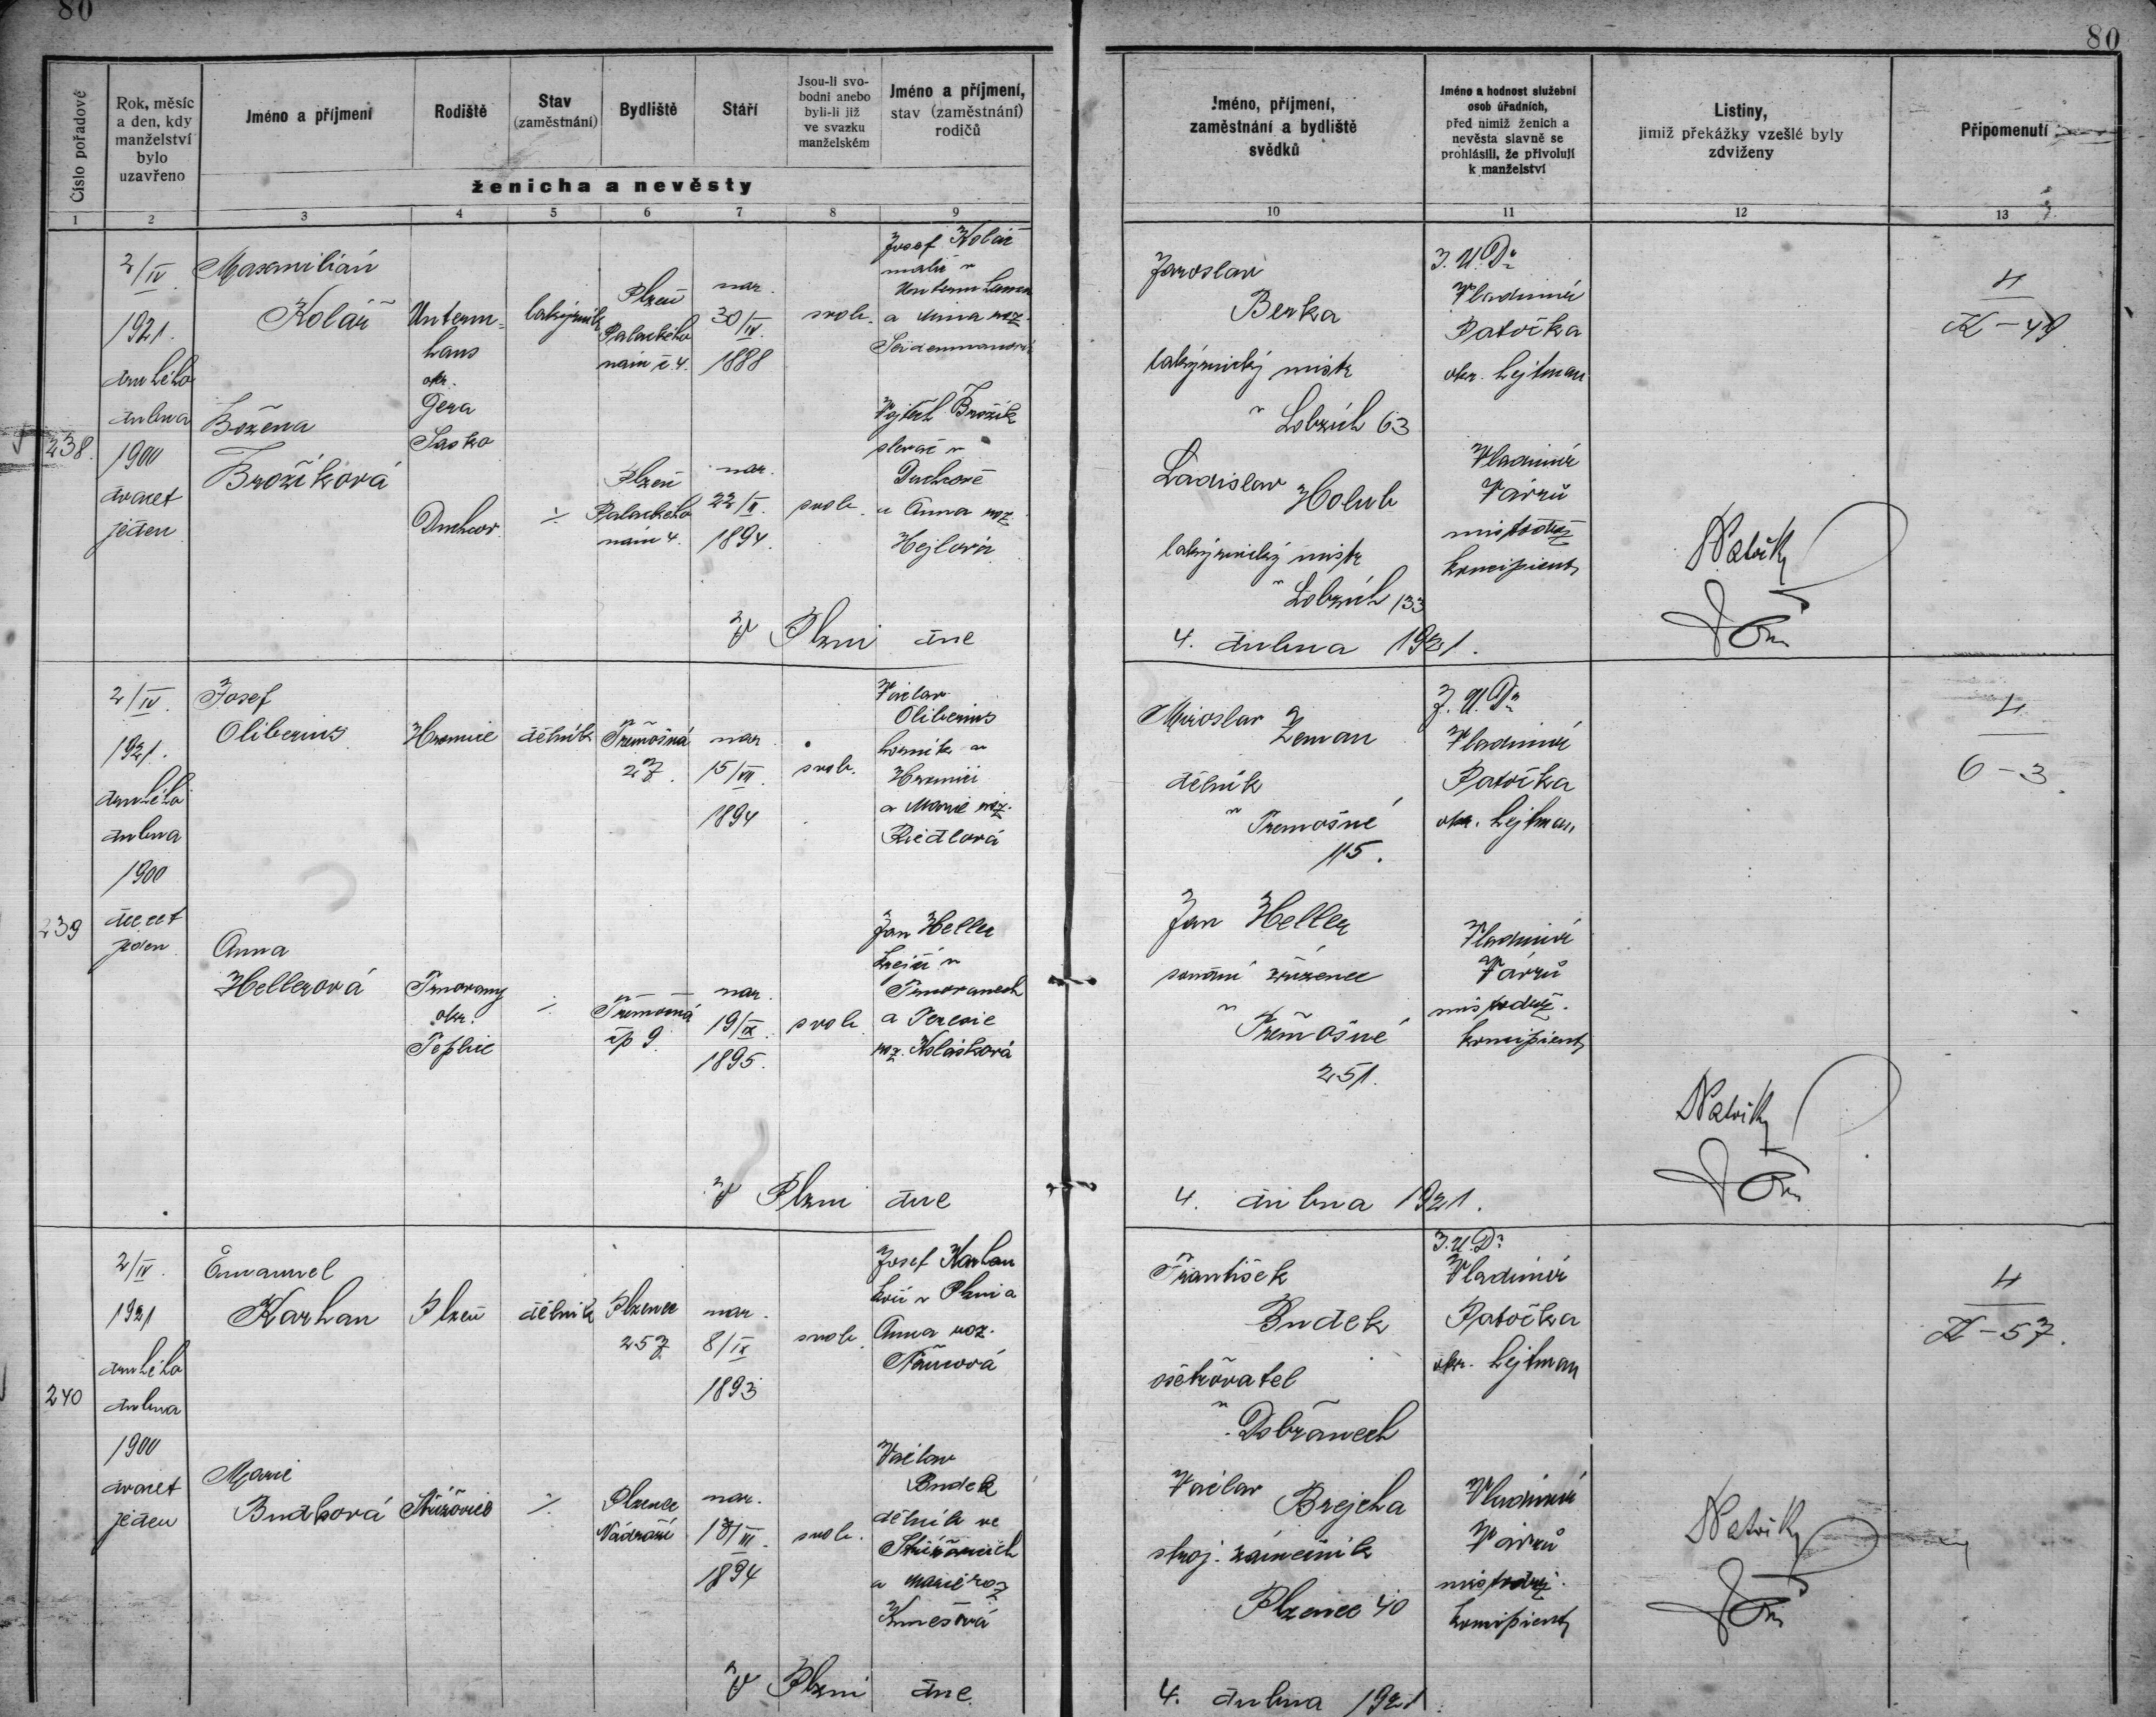 80
80
Číslo pořadové
Rok, měsíc
a den, kdy
manželství
bylo
uzavřeno
Jméno a příjmení
Rodiště
Stav
(zaměstnání)
Bydliště
Stáří
Jsou-li svo-
bodni anebo
byli-li již
ve svazku
manželském
Jméno a příjmení,
stav (zaměstnání)
rodičů
ženicha a nevěsty
Jméno, příjmení,
zaměstnání a bydliště
svědků
Jméno a hodnost služební
osob úřadních,
před nimiž ženich a
nevěsta slavně se
prohlásili, že přivolují
k manželství
Listiny,
jimiž překážky vzešlé byly
zdviženy
Připomenutí
1 2 3 4 5 6 7 8 9 10 11 12 13
238.
2/IV.
1921.
druhého
dubna
1900
dvacet
jeden
Maxmilián
Kolář
Unterm=
haus
okr.
Gera
Sasko
Plzeň
Palackého
nám č. 4.
nar.
30/IV.
1888
svob.
Josef Kolář
malíř v
a Anna roz.
Božena
Brožíková
Duchcov
Plzeň
Palackého
nám 4.
nar.
22/II.
1894.
svob.
Vojtěch Brožík
slevač v
Duchcově
a Anna roz.
Hejlová
Jaroslav
Berka
mistr
v Lobzích 63
Ladislav
Holub
mistr
v Lobzích 133
J. U. Dr
Vladimír
Patočka
okr. hejtman
Vladimír
Várrů
místodrž
koncipient
4
K-49
V Plzni dne
4. dubna 1921.
239
2/IV.
1921.
druhého
dubna
1900
dvacet
jeden
Josef
Oliberius
Hromnice
dělník
Třemošná
27.
nar.
15/VII.
1894
svob.
Václav
Oliberius
horník v
Hromnici
a Marie roz.
Riedlová
Anna
Hellerová
Trnovany
okr.
Teplice
Třemošná
čp 9.
nar.
19/IX.
1895.
svob.
Jan Heller
krejčí v
Trnovanech
a Terezie
roz. Kolásková
Miroslav
Zeman
dělník
v Třemošné
115.
Jan Heller
soudní zřízenec
v Třemošné
251.
J. U. Dr
Vladimír
Patočka
okr. hejtman
Vladimír
Várrů
místodrž.
koncipient
4
O-3.
V Plzni dne
4. dubna 1921.
240
2/IV.
1921
druhého
dubna
1900
dvacet
jeden
Emanuel
Karhan
Plzeň
dělník
Plzenec
257
nar.
8/IX
1893
svob.
Josef Karhan
kočí v Plzni a
Anna roz.
Marie
Budková
Střížovice
Plzenec
Nádraží
nar.
/III.
1894
svob.
Václav
Budek
dělník ve
Střížovicích
a Marie roz
František
Budek
ošetřovatel
v Dobřanech
Václav
Brejcha
stroj. zámečník
Plzenec 40
J. U. Dr
Vladimír
Patočka
okr. hejtman
Vladimír
Várrů
místodrž.
koncipient
4
K-57.
V Plzni dne
4. dubna 1921.